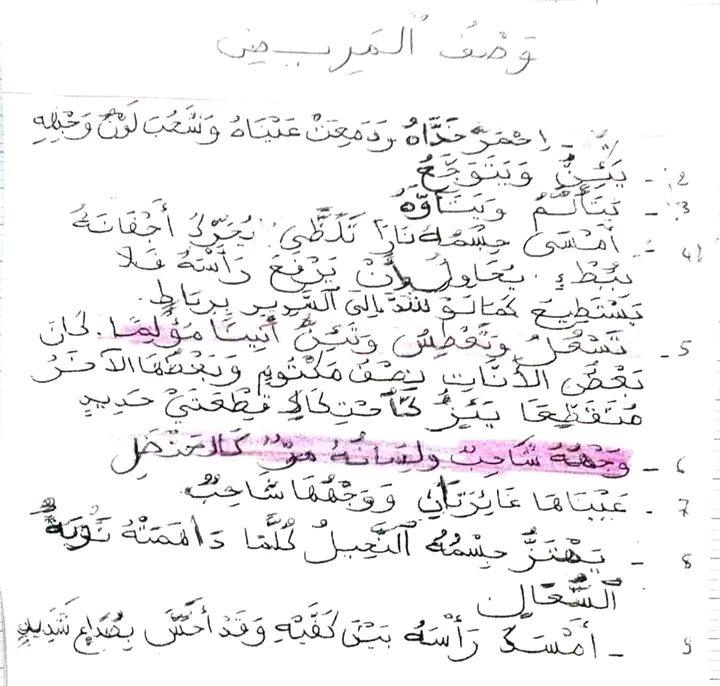 وَصْفُ الْمَرِيضِ
1 - اِحْمَرَّ خَدَّاهُ وَدَمِعَتْ عَيْنَاهُ وَشَحُبَ لَوْنُ وَجْهِهِ
2 - يَئِنُّ وَيَتَوَجَّعُ
3 - يَتَأَلَّمُ وَيَتَأَوَّهُ
4 - أَمْسَى جِسْمُهُ نَارًا تَلَظَّى يُحَرِّكُ أَجْفَانَهُ
بِبُطْءٍ. يُحَاوِلُ أَنْ يَرْفَعَ رَأْسَهُ فَلَا
يَسْتَطِيعَ كَمَا لَوْ شُدَّ إِلَى السَّرِيرِ بِرِبَاطٍ.
5 - تَسْعُلُ وَتَعْطِسُ وَتَئِنُّ أَنِينًا مُؤْلِمًا. كَانَ
بَعْضُ الأَنَّاتِ نِصْفُ مَكْتُومٍ وَبَعْضُهَا الآخَرُ
مُتَقَطِّعًا يَئِزُّ كَاحْتِكَاكِ قِطْعَتَيْ حَدِيدٍ
6 - وَجْهُهُ شَاحِبٌ وَلِسَانُهُ مُرٌّ كَالحَنْظَلِ
7 - عَيْنَاهَا غَائِرَتَانِ وَوَجْهُهَا شَاحِبٌ
8 - يَهْتَزُّ جِسْمُهُ النَّحِيلُ كُلَّمَا دَاهَمَتْهُ نَوْبَةُ
السُّعَالِ
9 - أَمْسَكَ رَأْسَهُ بَيْنَ كَفَّيْهِ وَقَدْ أَحَسَّ بِصُدَاعٍ شَدِيدٍ